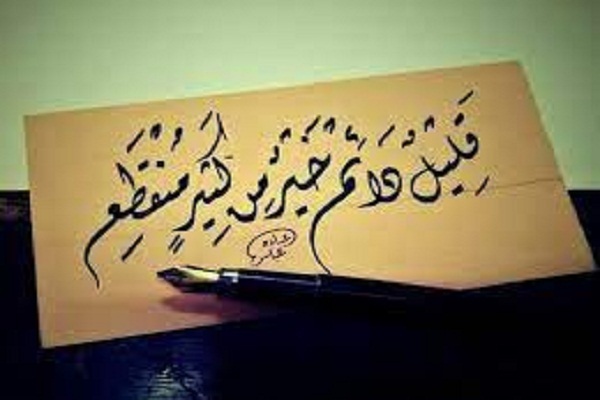 قَلِيلٌ دَائِمٌ خَيْرٌ مِنْ كَثِيرٍ مُنْقَطِعٍ